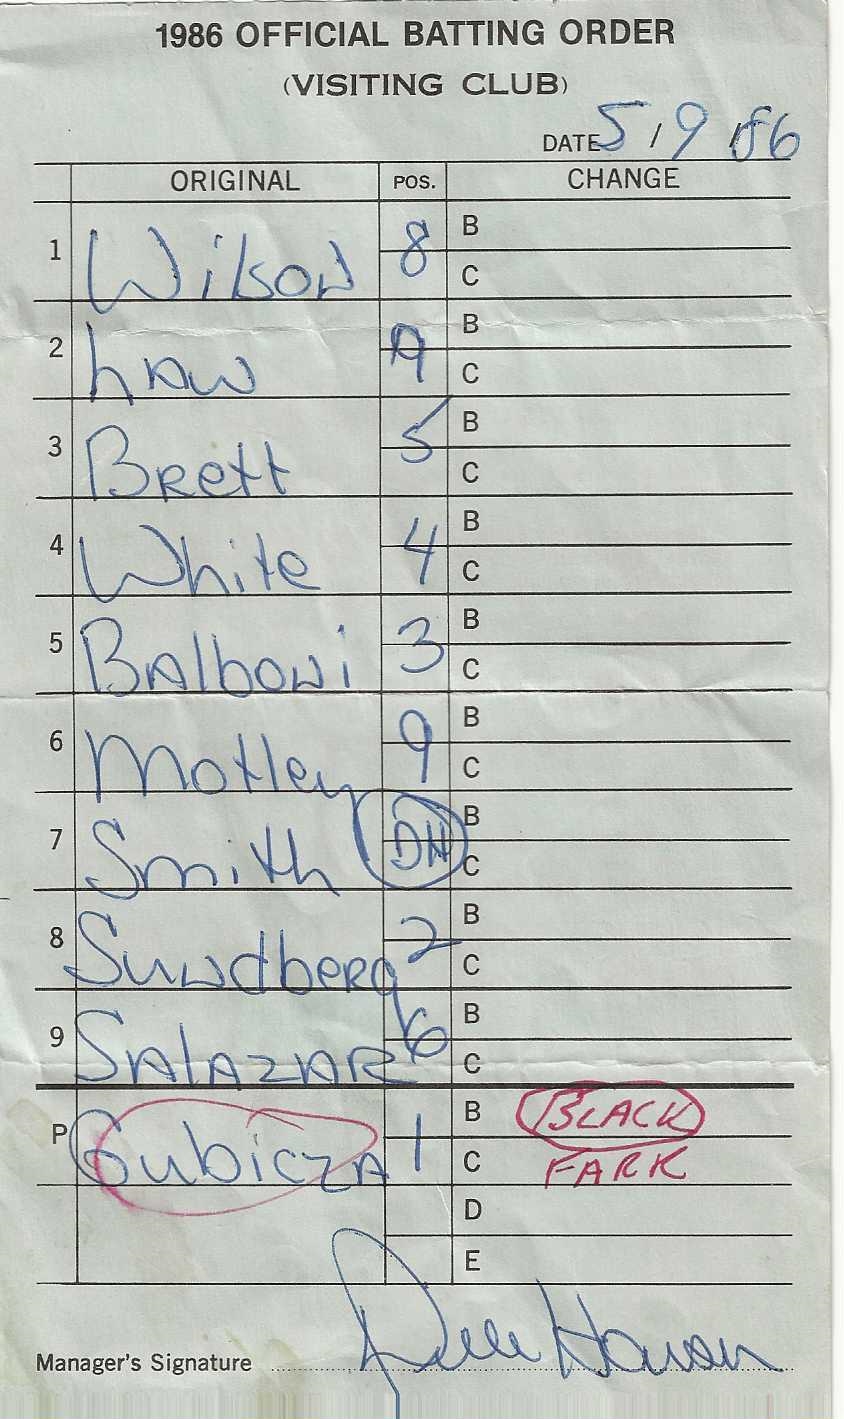 1986 OFFICIAL BATTING ORDER
(VISITING CLUB)
DATE 5/9/86
ORIGINAL POS. CHANGE
1 Wilson 8 B
C
2 Law B
C
3 Brett 5 B
C
4 White 4 B
C
5 Balboni 3 B
C
6 Motley 9 B
C
7 Smith DH B
C
8 Sundberg 2 B
C
9 Salazar 6 B
C
P Gubicza 1 B BLACK
C FARR
D
E
Manager's Signature Dick Howser